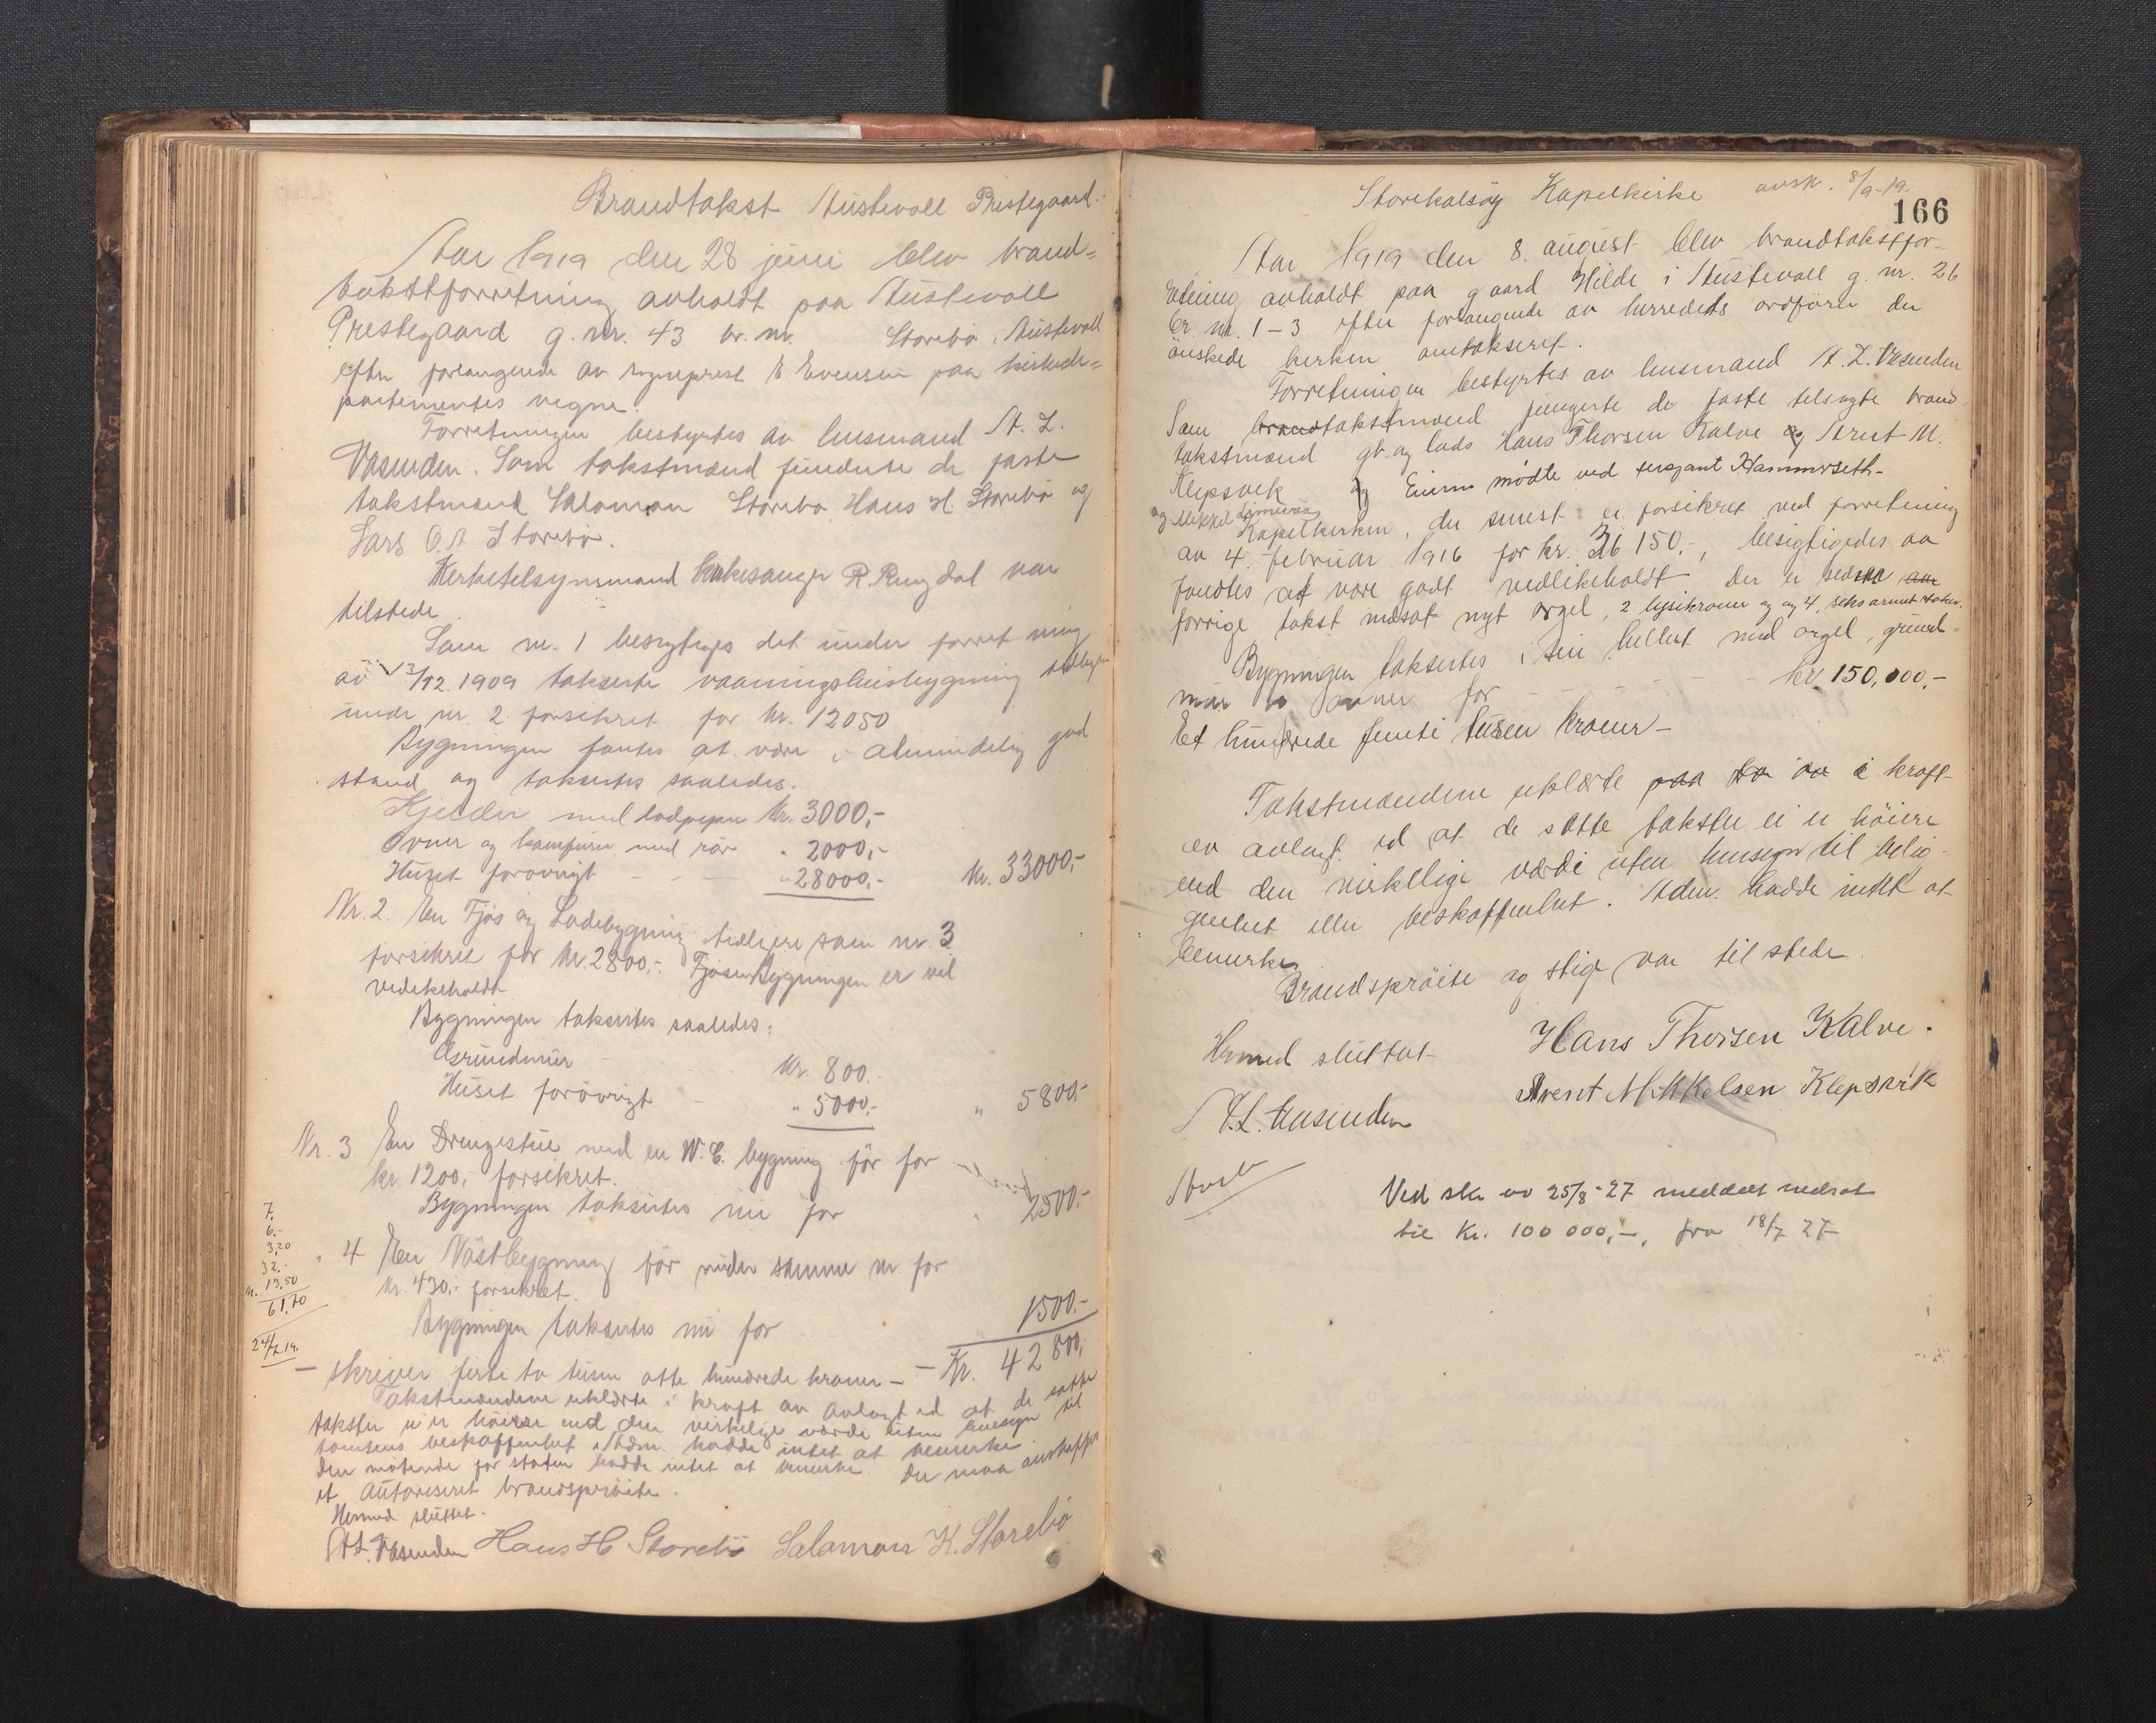 Brandtakst Austevoll Prestegaard.
Aar 1919 den 28 juni blev brand=
takstforretning avholdt paa Austevoll
Prestegaard g. nr. 43 br. nr. Storebø i Austevoll
efter forlangende av sogneprest E Evensen paa kirkede=
partementes vegne.
Forretningen bestyrtes av lensmand A. L.
Vasenden. Som takstmænd fungerte de faste
takstmænd Salomon Storebø Hans H. Storebø og
Lars O. A Storebø.
Kirketilsynsmand kirkesanger R. Ringdal var
tilstede
Som nr. 1 besigtiges det under forretning
av 13/12 1909 takserte vaaningshusbygning tidligere
under nr. 2 forsikret for kr. 12050
Bygningen fantes at være i almindelig god
stand og taksertes saaledes.
Kjelder med lodpipe kr. 3000,-
Ovner og kamfurer med rør " 2000,-
Huset forøvrigt - - - " 28000,- kr. 33000,-
Nr. 2. En Fjøs og Ladebygning tidligere som nr. 3
forsikret for kr. 2800,-. Fjøsbygningen er vel
vedlikeholdt
Bygningen taksertes saaledes:
Grundmur - kr. 800.-
Huset forøvrigt - " 5000.- " 5800.-
Nr. 3 En Drengestue med en W.C. bygning før for
kr. 1200,- forsikret.
Bygningen taksertes nu for 2500.-
" 4 En Nøstbygning før under samme nr. for
kr. 430,- forsikret.
Bygningen taksertes nu for 1500.-
- skriver firti to tusen otte hundrede kroner - Kr. 42800,
Takstmændene erklærte i kraft av avlagt ed at de satte
takster ei er høiere end den virkelige værdi uten hensyn til
tomtens beskaffenhet. Adm. hadde intet at bemerke
den møtende for staten hadde intet at bemerke. Der maa anskaffes
et autoriseret brandsprøite.
Hermed sluttet.
A.L. Vasenden Hans H Storebø Salamon K. Storebø
7.
6.-
3,20
32.-
13,50
61,70
24/7 19.
Storekalsøy Kapelkirke avsk. 8/9-19.
166
Aar 1919 den 8. august blev brandtakstfor-
retning avholdt paa gaard Hilde i Austevoll g. nr. 26
br. nr. 1-3 efter forlangende av herredets ordfører der
ønskede kirken omtakseret.
Forretningen bestyrtes av lensmand A. L. Vasenden
Som brandtakstmænd fungerte de faste tilsagte brand
takstmænd gb. og lods Hans Thorsen Kalve og Arent M.
Klepsvik og Eieren mødte ved sersjant Hammerseth-
og Mikkel
Kapelkirken, der senest er forsikret ved forretning
av 4. februar 1916 for kr. 36150,-, besigtigedes og
fandtes at være godt vedlikeholdt Der er siden
forrige takst indsat nyt orgel, 2 lysekroner og 4, seks armet staker.
Bygningen taksertes i sin helhet med orgel, grund-
mur ovner for - - - - - kr. 150,000,-
Et hundrede femti tusen kroner-
Takstmændene erklærte paa i kraft
av avlagt ed at de satte takster ei er høiere
end den virkellige værdi uten hensyn til belig-
genhet eller beskaffenhet. Adm. hadde intet at
bemerke
Brandsprøite og stige var tilstede.
Hermed sluttet Hans Thorsen Kalve.
A.L. Vasenden Arent Mikkelsen Klepsvik
Ved skr av 25/8-27 meddelt nedsat
til Kr. 100 000,-, fra 18/7 27